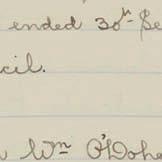 ended 30th Se
cil.
Wm O'Dohe